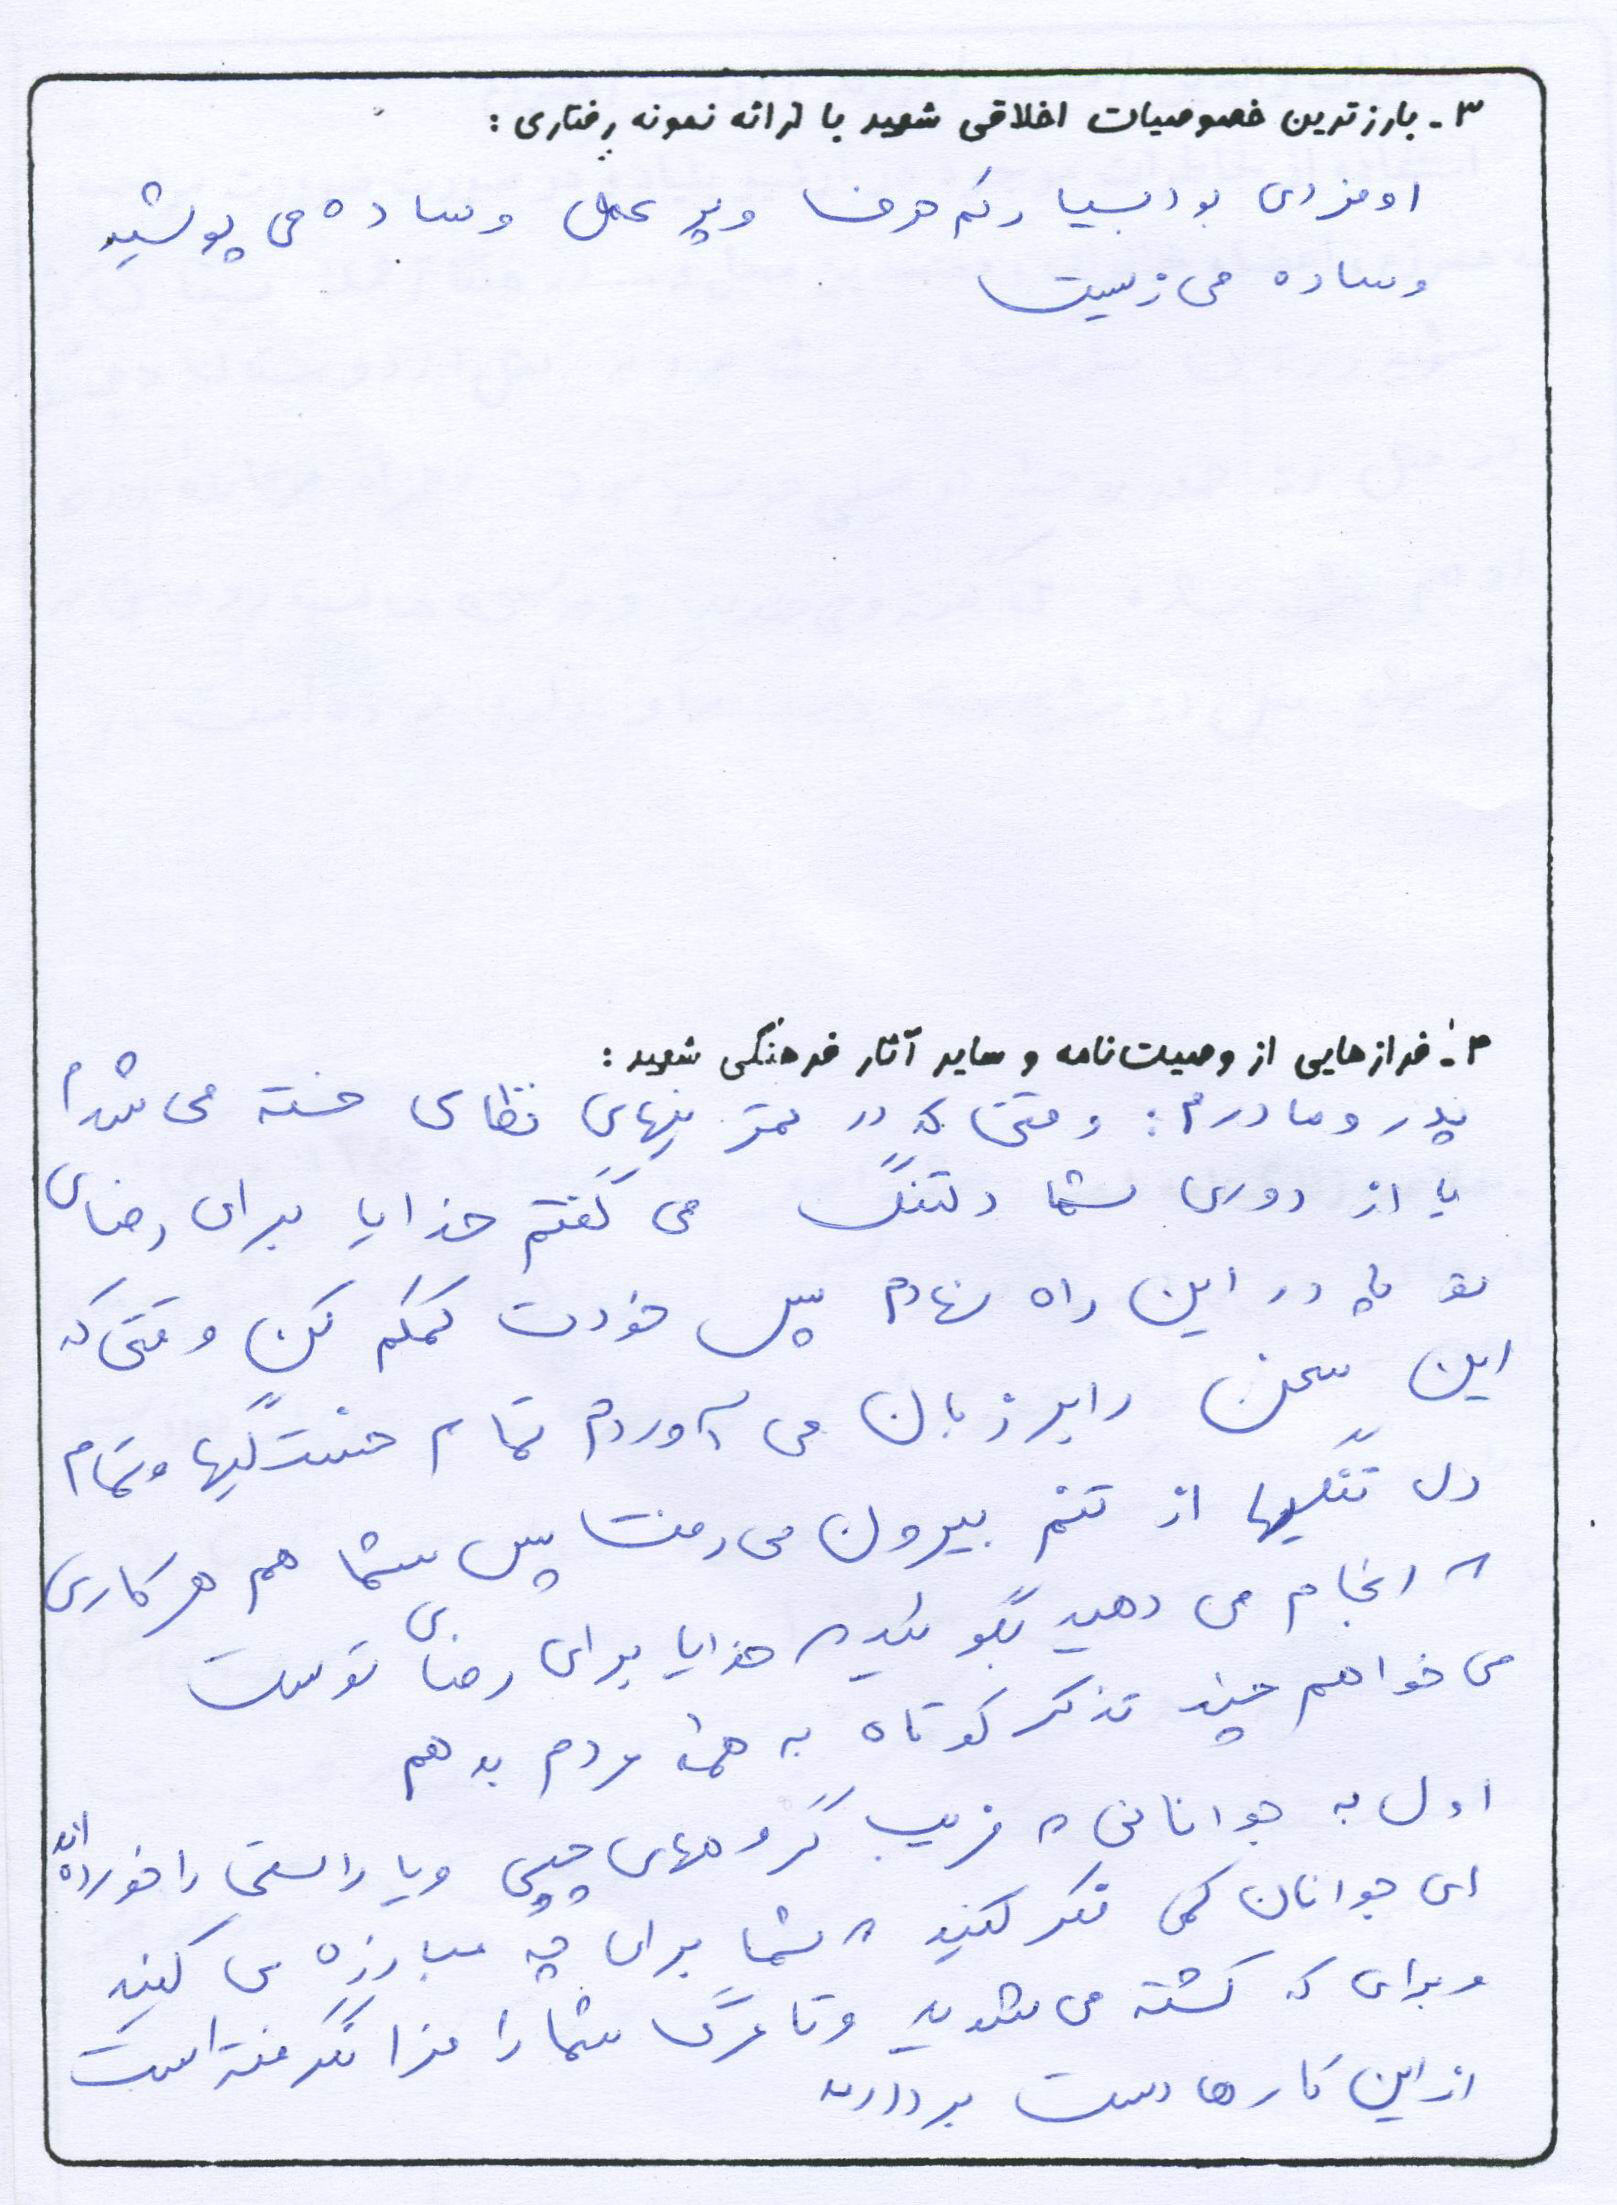 ۳- بارزترین خصوصیات اخلاقی شهید با ارائه نمونه رفتاری:
او فردی بود بسیار کم حرف و پر عمل و ساده می پوشید
و ساده می زیست
۴- فرازهایی از وصیت‌نامه و سایر آثار فرهنگی شهید:
پدر و مادرم: وقتی که در تمرینهای نظامی خسته می شدم
یا از دوری شما دلتنگ می گفتم خدایا برای رضای
تو پا در این راه نهادم پس خودت کمکم کن وقتی که
این سخن را بر زبان می آوردم تمام خستگیها و تمام
دل تنگیها از تنم بیرون می رفت پس شما هم هر کاری
که انجام می دهید بگوئید که خدایا برای رضای توست
می خواهم چند تذکر کوتاه به همهٔ مردم بدهم
اول به جوانانی که فریب گروههای چپی و یا راستی را خورده اند
ای جوانان کمی فکر کنید که شما برای چه مبارزه می کنید
و برای که کشته می شوید و تا مرگ شما را فرا نگرفته است
از این کارها دست بردارید